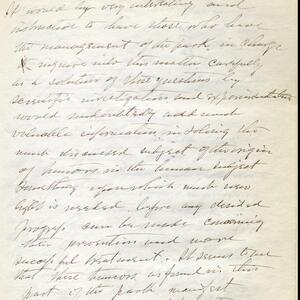 It would be very interesting and
instructive to have those who have
the management of the park in charge
inquire into this matter carefully
as a solution of these questions by
scientific investigation and experimentation
would undoubtedly add most
valuable information in solving the
much discussed subject of the origin
of tumors in the human subject
Something upon which much new
light is needed before any decided
progress can be made concerning
their prevention and more
successful treatment. It seems to me
that these tumors as found in this
part of the park manifest